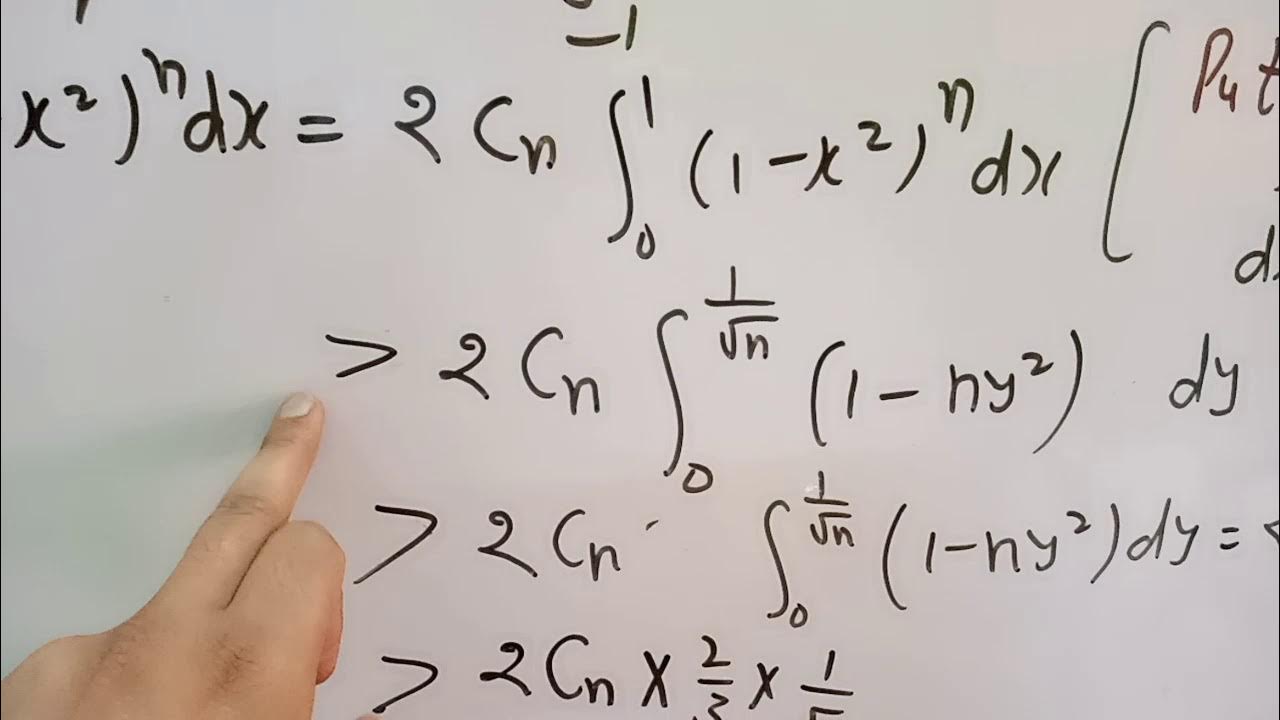 -1
x²)ⁿdx = 2 Cₙ ∫₀¹ (1-x²)ⁿ dx [ Put
> 2 Cₙ ∫₀^(1/√n) (1-ny²) dy
> 2 Cₙ ∫₀^(1/√n) (1-ny²)dy =
> 2 Cₙ × 2/3 × 1/